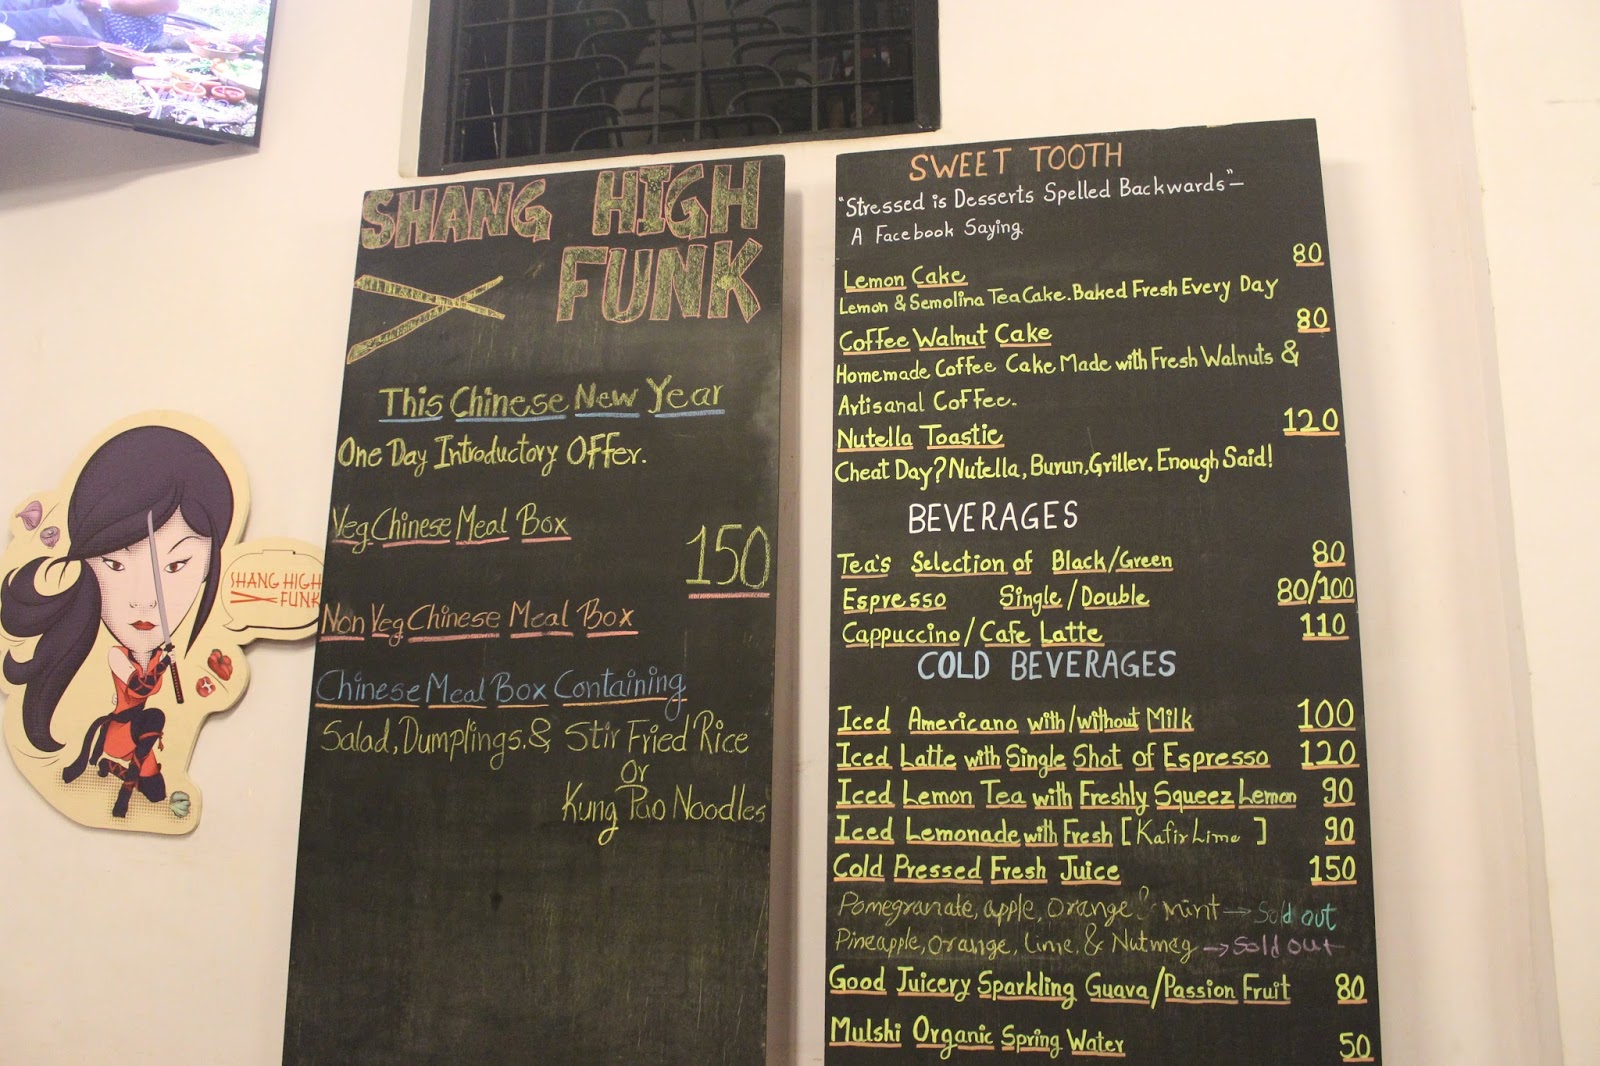 SHANG HIGH
FUNK
This Chinese New Year
One Day Introductory Offer.
Veg Chinese Meal Box
150
Non Veg Chinese Meal Box
Chinese Meal Box Containing
Salad, Dumplings. & Stir Fried Rice
Or
Kung Pao Noodles
SHANG HIGH
FUNK
SWEET TOOTH
"Stressed is Desserts Spelled Backwards"-
A Facebook Saying
Lemon Cake 80
Lemon & Semolina Tea Cake. Baked Fresh Every Day
Coffee Walnut Cake 80
Homemade Coffee Cake Made with Fresh Walnuts &
Artisanal Coffee.
Nutella Toastie 120
Cheat Day? Nutella, Burun, Griller. Enough Said!
BEVERAGES
Tea's Selection of Black/Green 80
Espresso Single/Double 80/100
Cappuccino/Cafe Latte 110
COLD BEVERAGES
Iced Americano with/without Milk 100
Iced Latte with Single Shot of Espresso 120
Iced Lemon Tea with Freshly Squeez Lemon 90
Iced Lemonade with Fresh [Kafir Lime] 90
Cold Pressed Fresh Juice 150
Pomegranate, apple, orange & Mint → Sold out
Pineapple, orange, Lime, & Nutmeg → Sold out
Good Juicery Sparkling Guava/Passion Fruit 80
Mulshi Organic Spring Water 50